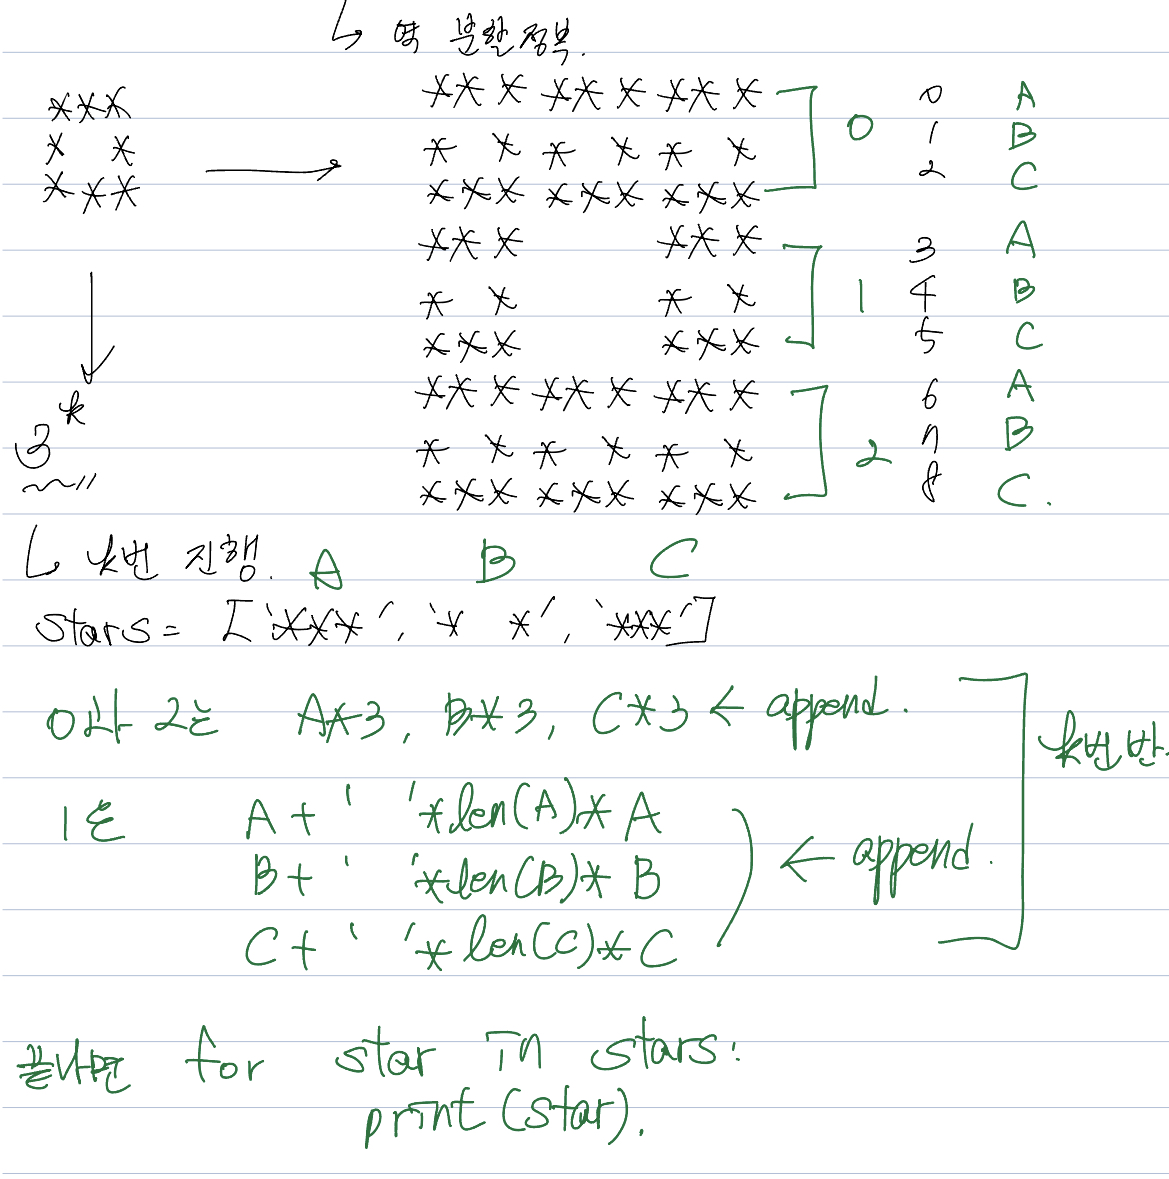 ↳ 역 분할정복.
*** *** *** ] 0 0 A
*** * * * * * * 1 B
* * *** *** *** 2 C
*** → *** *** ] 1 3 A
* * * * 4 B
*** *** 5 C
↓ *** *** *** ] 2 6 A
3^k * * * * * * 7 B
*** *** *** 8 C.
↳ k번 진행. A B C
stars = ['***', '* *', '***']
0과 2는 A*3, B*3, C*3 ← append.
k번 반.
1은 A + ' '*len(A)* A
B + ' '*len(B)* B ← append.
C + ' '*len(C)* C
끝나면 for star in stars:
print(star).